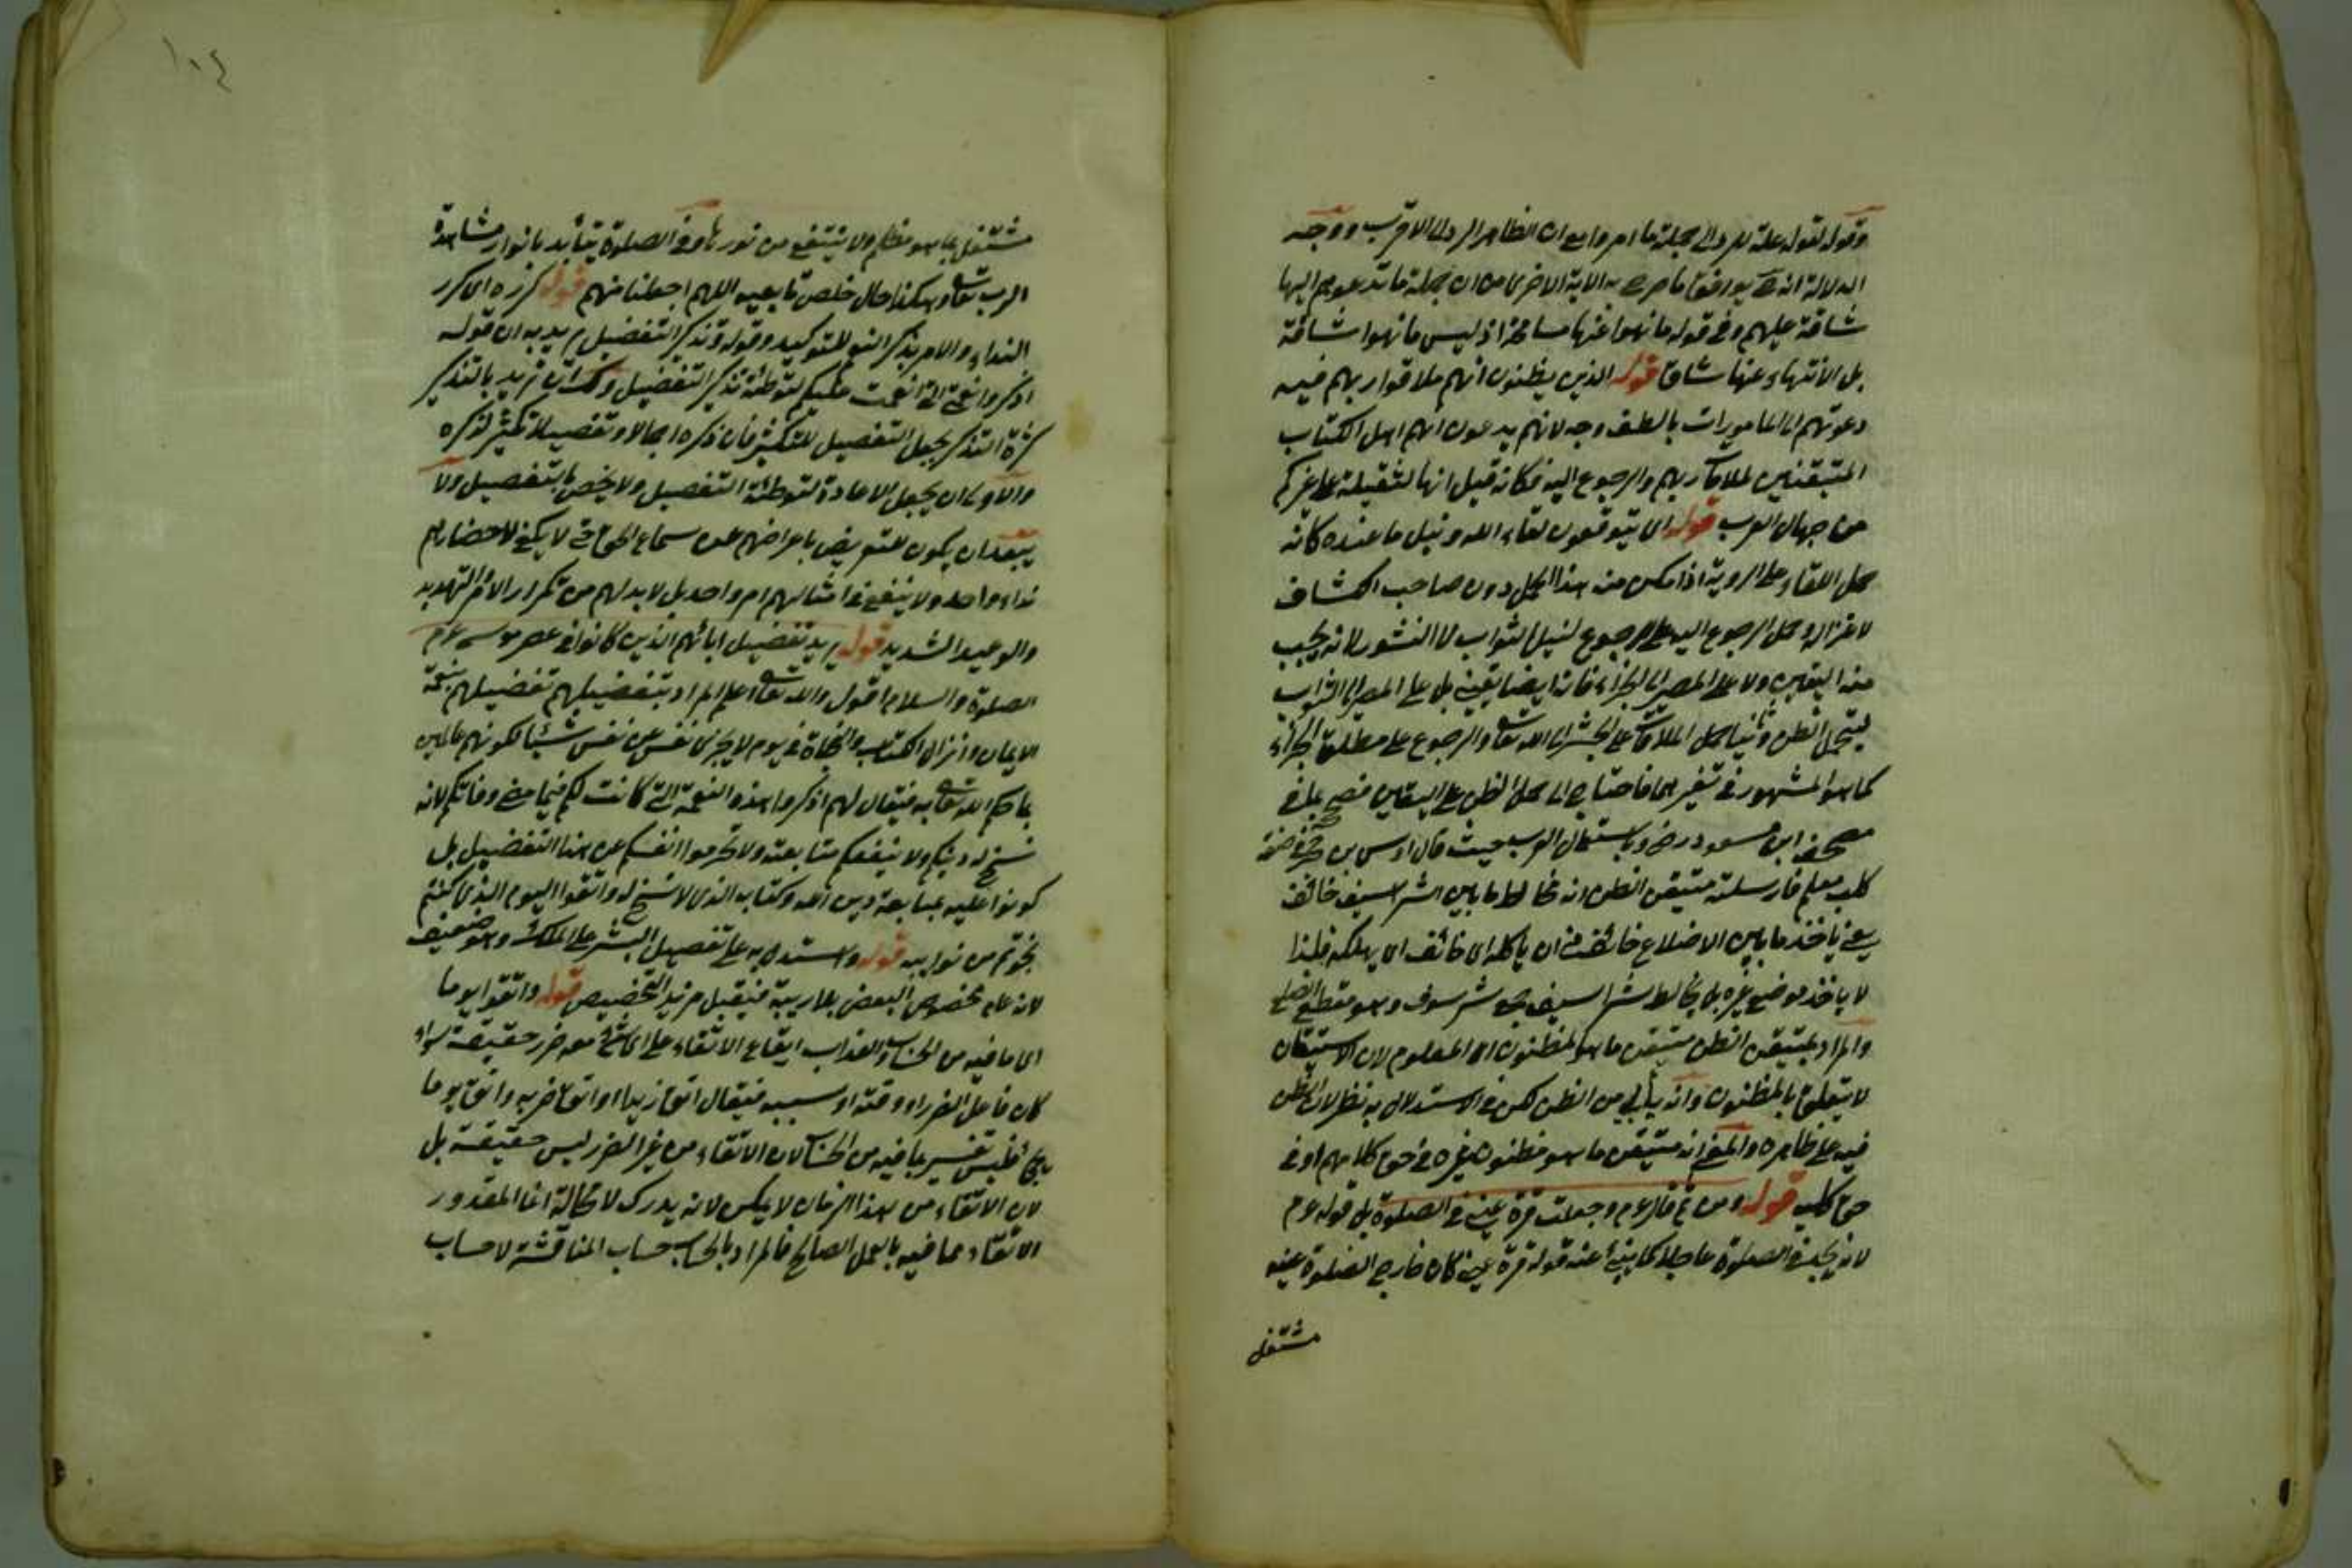 وقوله لقوله علة للرد الى جملة ما امروا مع ان الظاهر الرد الى الاقرب ووجه
الدلالة انه يوافق ما صرح به الآية الاخرى من ان جملة ما تدعوهم اليها
شاقة عليهم وفي قوله ما نهوا عنها مسامحة اذ ليس ما نهوا شاقة
بل الانتهاء عنها شاق قوله الذين يظنون انهم ملاقوا ربهم فيه
دعوتهم الى المامورات بالطف وجه لانهم يدعون انهم اهل الكتاب
المتيقنين لملاقاة ربهم والرجوع اليه فكانه قيل انها لثقيلة على غيركم
من جهال العرب قوله اى يتوقعون لقاء الله ونيل ما عنده كانه
حمل اللقاء على الروية اذا مكن منه هذا الحمل دون صاحب الكشاف
لاعتزاله وحمل الرجوع اليه على الرجوع لنيل الثواب لا النشور لانه يجب
فيه اليقين ولا على المصير الى الجزاء فانه ايضا يقيني بل على المصير الى الثواب
ليتحمل الظن وثانيا حمل الملاقات على الحشر الى الله تعا والرجوع على مطلق الجزاء
كما هو المشهور في تفسيرهما فاحتاج الى حمل الظن على اليقين فصح بما في
مصحف ابن مسعود رض وباستعمال العرب حيث قال اوس بن حجر في صفة
كلب معلم فارسلته متيقن الظن انه مخالط ما بين الشراسيف خائف
يعني ياخذ ما بين الاضلاع خائف من ان ياكله اى خائف اى يهلكه فلذا
لا ياخذ موضع غيره بل يخالط شراسيف جمع شرسوف وهو مقطع الضلع
والمراد بمتيقن الظن متيقن ما هو المظنون اى المعلوم لان الاستيقان
لا يتعلق بالمظنون وانه يأبى من الظن لكن في الاستدلال به نظر لان الظن
فيه على ظاهره والمعنى انه متيقن ما هو مظنون غيره في حق كلابهم او في
حق كلب قوله ومن ثم قال عم وجعلت قرة عيني في الصلوة بل قوله عم
لانه يجد في الصلوة عاجلا كما ينبئ عنه قوله قرة عيني كان خارج الصلوة عينه
مشتغل
مشتغل بما هو مظلم ولا ينتفع من نورها وفي الصلوة يتأيد بانوار مشاهدة
الرب تعا وهكذا حال خلص تابعيه اللهم اجعلنا منهم قوله كرره اى كرر
النداء والامر بذكر النعم للتوكيد وقوله وتذكير التفضيل يريد به ان قوله
اذكروا نعمتي التي انعمت عليكم لتوطئة تذكير التفضيل ولك ان تريد بالتذكير
كثرة التذكر بجعل التفصيل للتكثير فان ذكره اجمالا وتفصيلا تكثير لذكره
والاولى ان يجعل الاعادة لتوطئة التفصيل ولا يخص بالتفصيل ولا
يبعد ان يكون للتعريض باعراضهم عن سماع الحق حتى لا يكفي لاحضارهم
نداء واحد ولا ينفع في امثالهم امر واحد بل لا بد لهم من تكرار الامر والتهديد
والوعيد الشديد قوله يريد تفضيل آبائهم الذين كانوا في عصر موسى عم
الصلوة والسلام اقول والله تعا اعلم المراد بتفضيلهم تفضيلهم بنعمة
الايمان وانزال الكتاب والنجاة في يوم لا يجزى نفس عن نفس شيئا لكونهم عاملين
بما حكم الله تعا به فيقال لهم اذكروا هذه النعمة التي كانت لكم فيما مضى وفاتكم لانه
نسخ له دينكم ولا ينفعكم متابعته ولا تحرموا انفسكم عن هذا التفضيل بل
كونوا عليه بمتابعة دين الله وكتابه الذى لا نسخ له واتقوا اليوم الذى كنتم
نجوتم من نوايبه قوله واستدل به على تفصيل البشر على الملك وهو ضعيف
لانه عام مخصوص البعض بلا ريبة فيقبل مزيد التخصيص قوله واتقوا يوما
اى ما فيه من الحساب والعذاب ايقاع الاتقاء على اى شئ معه ضرر حقيقة سواء
كان فاعل الضرر او وقته او سببه فيقال اتق زيدا او اتق ضربه واتق يوما
يجئ فليس تفسير بما فيه من الحساب لان الاتقاء من غير الضرر ليس حقيقة بل
لان الاتقاء من هذا الزمان لا يمكن لانه يدرك لا محالة انما المقدور
الاتقاء مما فيه بالعمل الصالح فالمراد بالحساب حساب المناقشة لا حساب
١٠٤